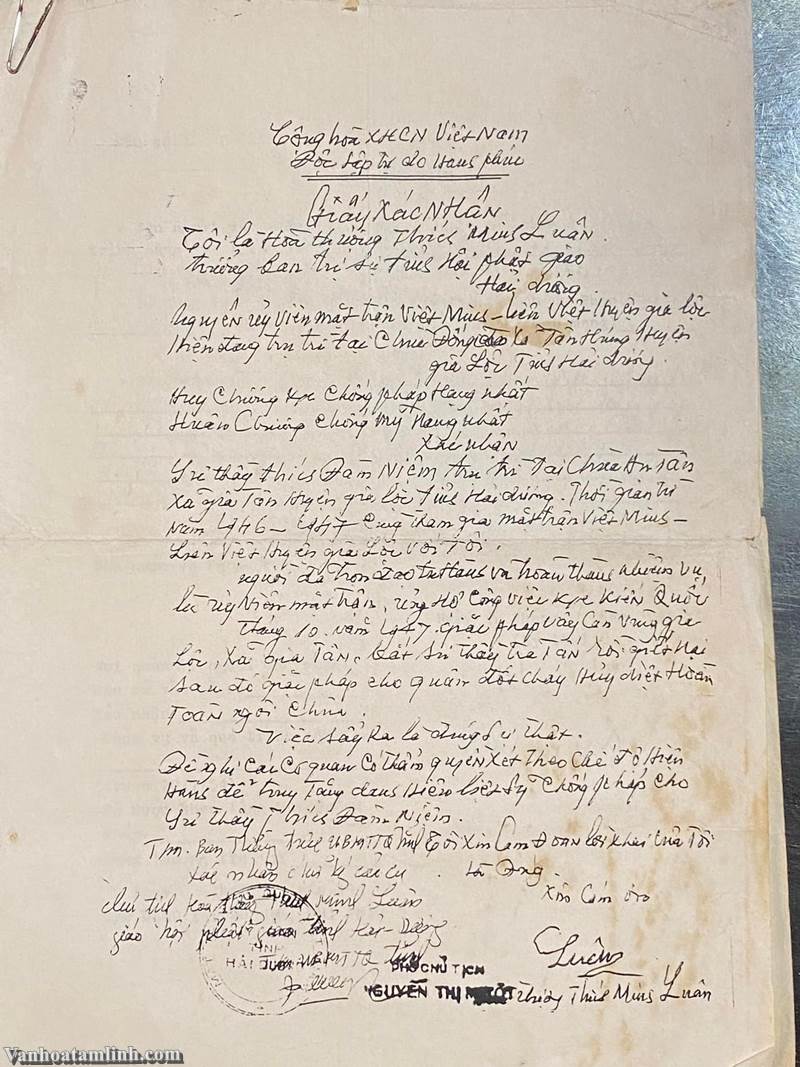 Cộng hòa XHCN Việt Nam
Độc lập tự do hạnh phúc
Giấy Xác Nhân
Tôi là Hòa thượng Thích Minh Luân
trưởng ban trị sự tỉnh Hội phật giáo
Hải dương.
Nguyên ủy viên mặt trận Việt Minh - Liên Việt Huyện gia lộc
Hiện đang trụ trì tại Chùa Đồng Xã Tân Hưng Huyện
gia Lộc Tỉnh Hải dương.
Huy Chương Chống pháp Hạng nhất
Huân Chương Chống Mỹ Hạng nhất
Xác nhân
Sư thầy thích Đàm Niệm trụ trì tại Chùa Tân
Xã gia Tân Huyện gia lộc tỉnh Hải dương. Thời gian từ
Năm 1946 - 1947 Cùng tham gia mặt trận Việt Minh -
Liên Việt Huyện gia Lộc với Tôi.
người đã trọn đạo tu Hành và hoàn thành nhiệm vụ
là ủy viên mặt trận, ủng Hộ Công việc Kiến Quốc
tháng 10 năm 1947. giặc pháp vây Càn vùng gia
Lộc, Xã gia Tân, bắt Sư thầy tra Tấn rồi giết Hại
Sau đó giặc pháp cho quân đốt cháy Hủy diệt Hoàn
Toàn ngôi Chùa.
Việc sảy Ra là đúng Sự thật.
Đề nghị Các Cơ quan Có thẩm quyền Xét theo Chế độ Hiện
Hành để truy Tặng danh Hiệu liệt Sỹ Chống pháp cho
Sư thầy Thích Đàm Niệm.
TM. Ban Thường trực UBMTTQ tỉnh Tôi Xin Cam Đoan lời khai của Tôi
Xác nhận chữ ký của cụ là Đúng.
Xin Cám ơn
Thích Minh Luân
giáo hội phật giáo tỉnh Hải - Dương
TỈNH
HẢI DƯƠNG
UBMTTQ tỉnh
PHÓ CHỦ TỊCH
Luân
NGUYỄN THỊ
Thượng Thích Minh Luân
Vanhoatamlinh.com